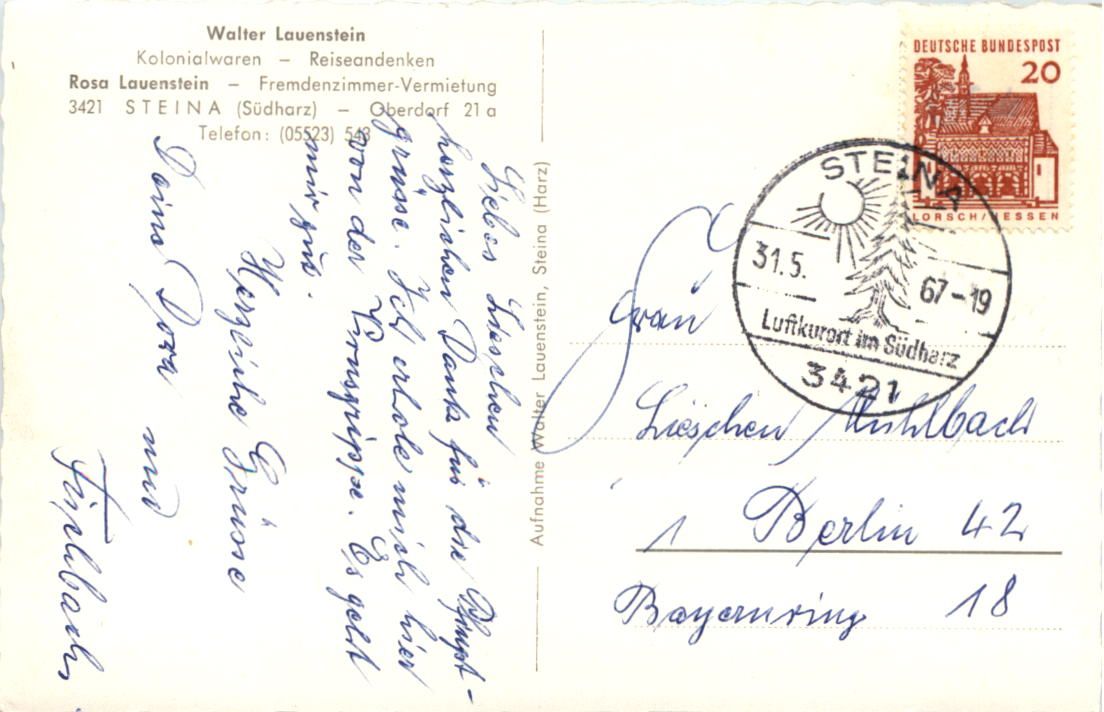 Walter Lauenstein
Kolonialwaren – Reiseandenken
Rosa Lauenstein – Fremdenzimmer-Vermietung
3421 STEINA (Südharz) – Oberdorf 21 a
Telefon: (05523) 543
Liebes Lieschen
herzlichen Dank für die Pfingst-
grüsse. Ich erhole mich hier
von der Virusgrippe. Es geht
mir gut.
Herzliche Grüsse
Deine Dora und
Fischbachs
Aufnahme Walter Lauenstein, Steina (Harz)
DEUTSCHE BUNDESPOST
20
LORSCH/HESSEN
STEINA
31.5. 67-19
Luftkurort im Südharz
3421
Frau
Lieschen Mühlbach
1 Berlin 42
Bayernring 18